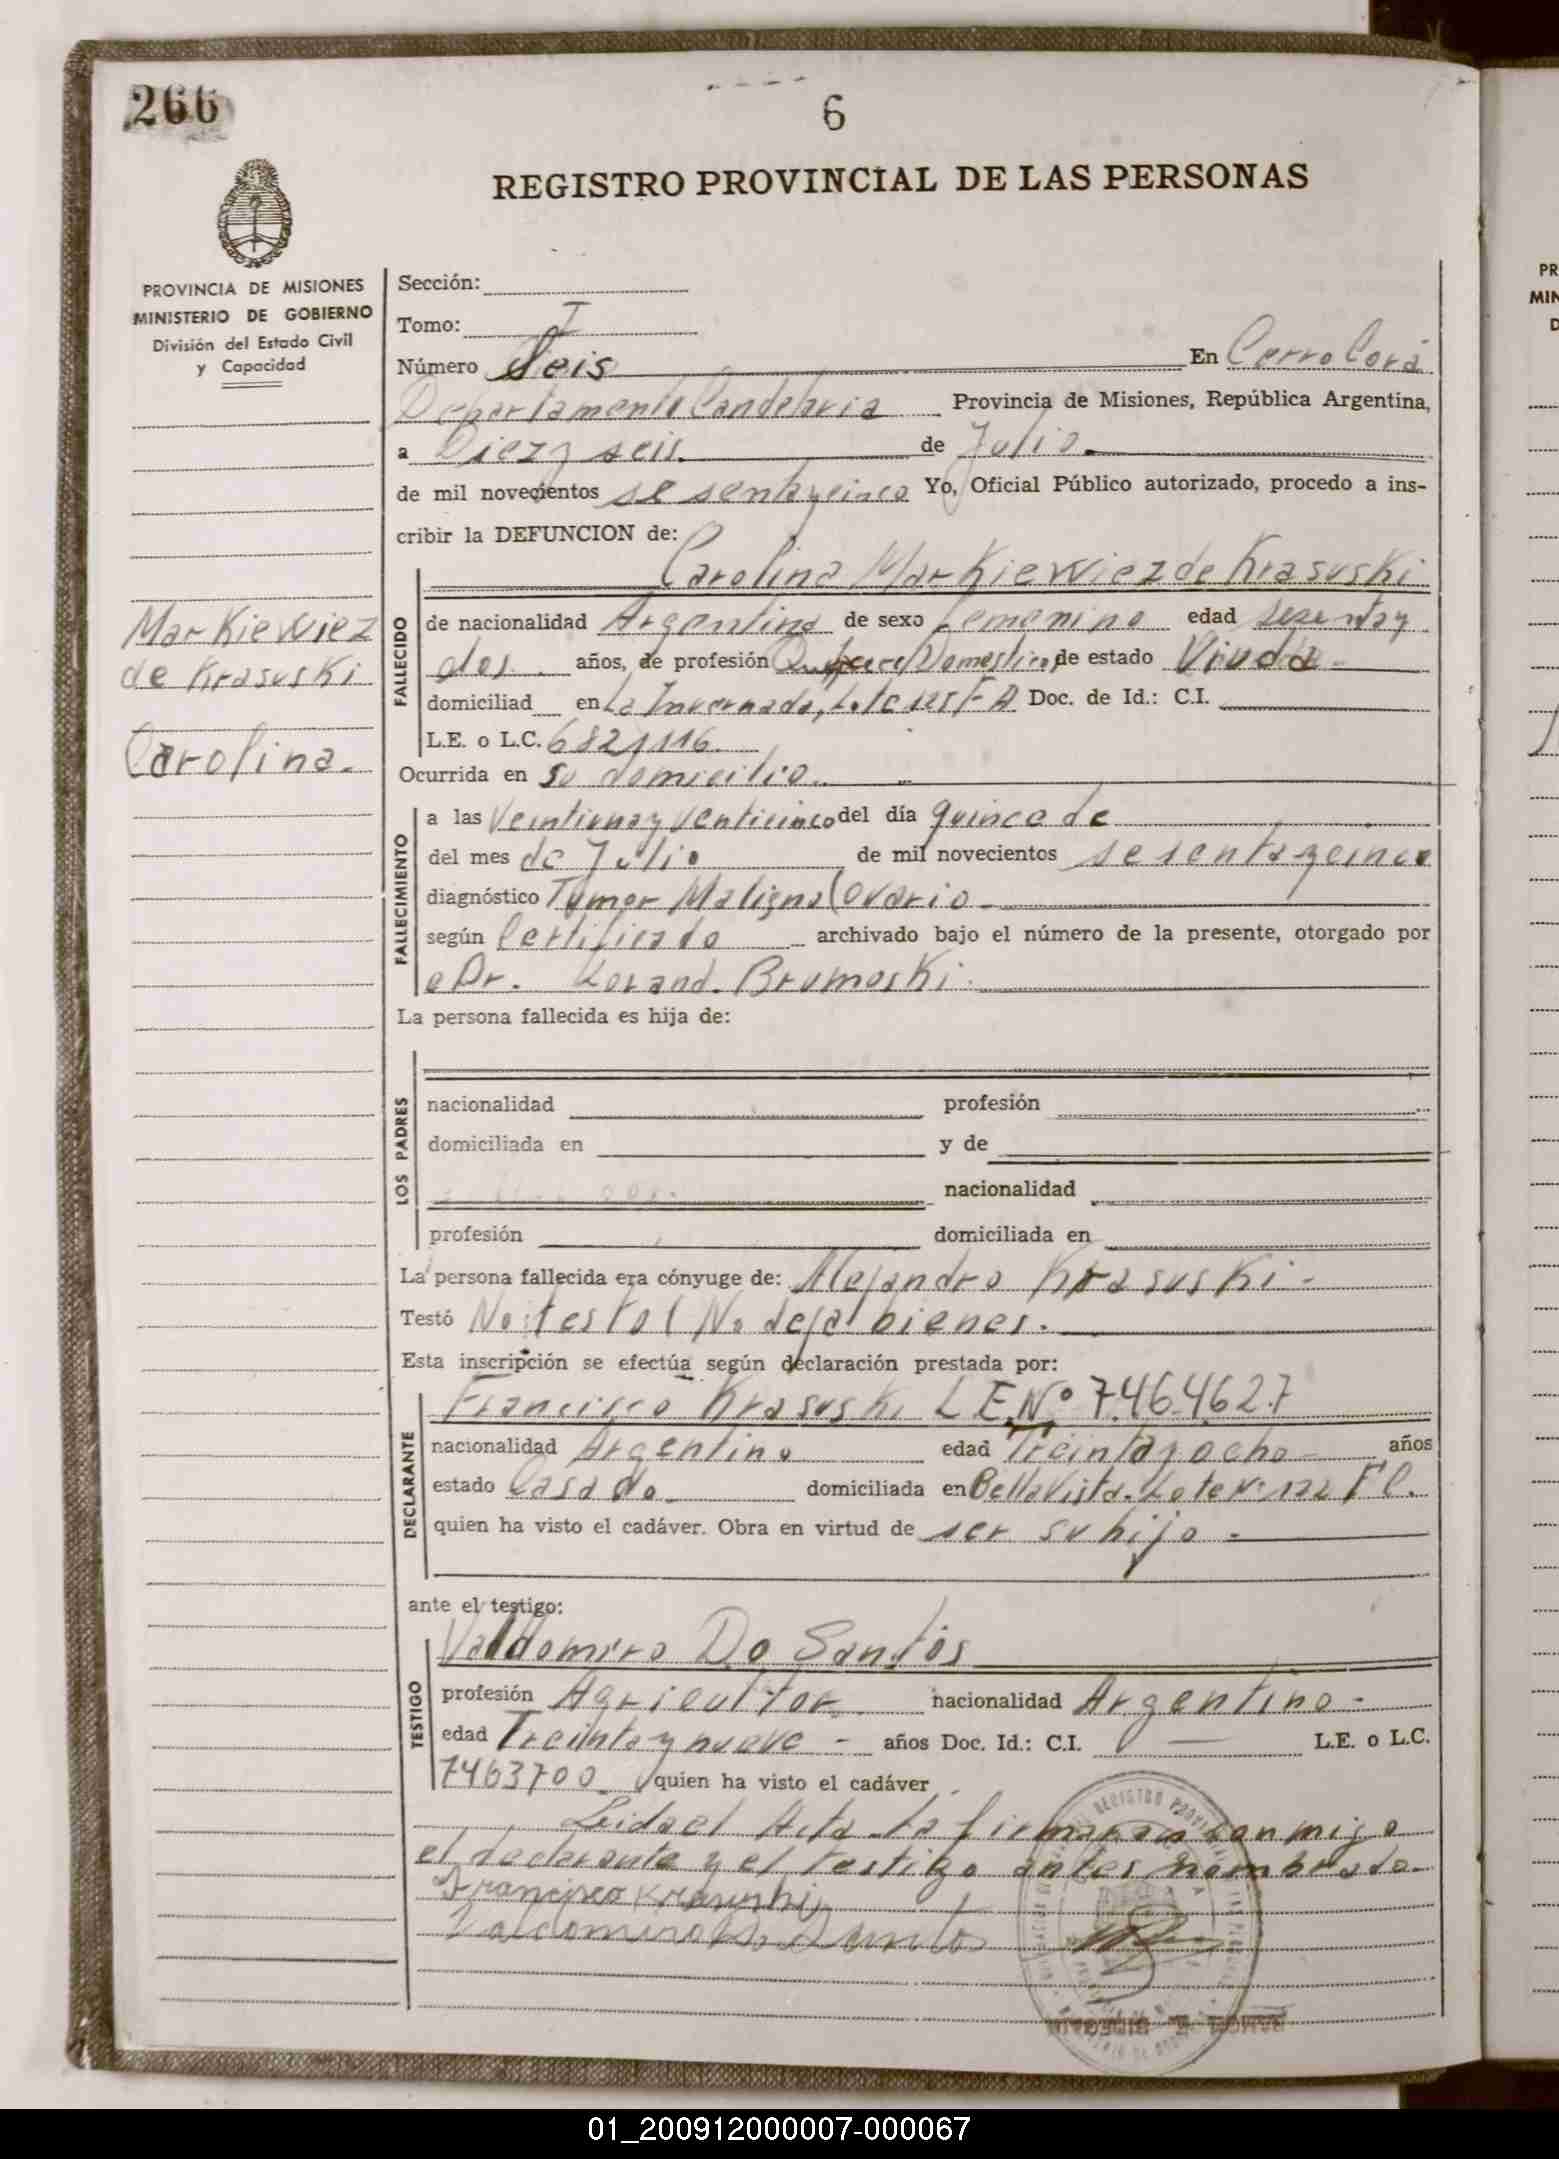 266
6
REGISTRO PROVINCIAL DE LAS PERSONAS
PROVINCIA DE MISIONES
MINISTERIO DE GOBIERNO
División del Estado Civil
y Capacidad
Markiewiez
de Krasuski
Carolina.
Sección:
Tomo: I
Número Seis En Cerro Corá
Departamento Candelaria Provincia de Misiones, República Argentina,
a Diez y seis. de Julio.
de mil novecientos sesentaycinco Yo, Oficial Público autorizado, procedo a ins-
cribir la DEFUNCION de:
Carolina Markiewiez de Krasuski
FALLECIDO
de nacionalidad Argentina de sexo Femenino edad sesentay
dos. años, de profesión Domesticos, de estado Viuda
domiciliad en La Invernada, Lote 125 F A Doc. de Id.: C.I.
L.E. o L.C. 6821116.
Ocurrida en su domicilio.
FALLECIMIENTO
a las Veintiunay Venticinco del día quince de
del mes de Julio de mil novecientos sesentaycinco
diagnóstico Tumor Maligno (ovario
según Certificado archivado bajo el número de la presente, otorgado por
e Dr. Lorand. Brumoski.
La persona fallecida es hija de:
LOS PADRES
nacionalidad profesión
domiciliada en y de
nacionalidad
profesión domiciliada en
La persona fallecida era cónyuge de: Alejandro Krasuski-
Testó No: testo ( No deja bienes.
Esta inscripción se efectúa según declaración prestada por:
DECLARANTE
Francisco Krasuski L E.Nº 7.464.627
nacionalidad Argentino edad Treintayocho años
estado Casado domiciliada en Bella Vista. Lote Nº 122 F C.
quien ha visto el cadáver. Obra en virtud de ser su hijo -
ante el testigo:
TESTIGO
Valdomiro Do Santos
profesión Agricultor. nacionalidad Argentino-
edad Treintay nueve - años Doc. Id.: C.I. — L.E. o L.C.
7463700 quien ha visto el cadáver
Leida el Acta la firmaron conmigo
el declarante y el testigo antes nombrado-
Francisco Krasuski
Valdomiro Do Santos
PR
MIN
D
01_200912000007-000067